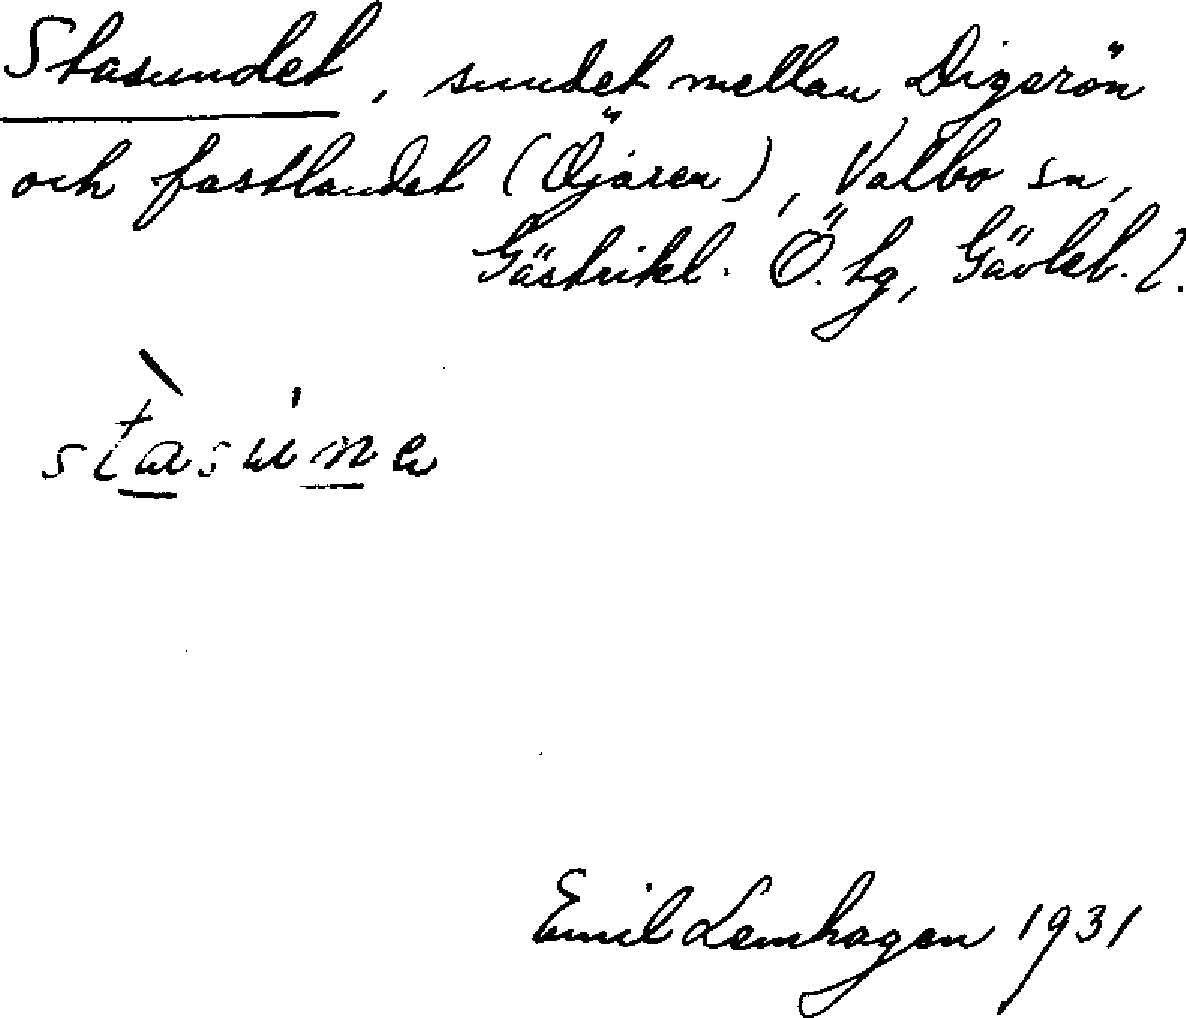 Stasundet, sundet mellan Digerön
och fastlandet (Öjaren), Valbo sn,
Gästrikl. Ö. tg, Gävleb. l.
stàsúne
Emil Lemhagen 1931